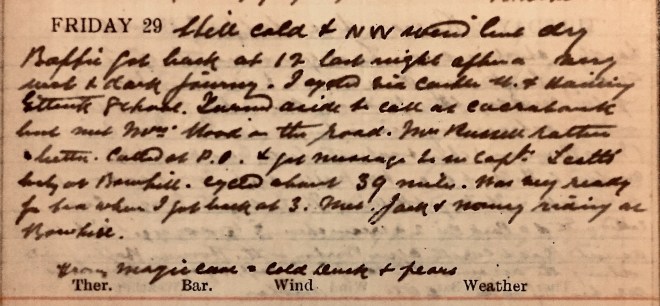 FRIDAY 29 Still cold & NW wind but dry
Baffie got back at 12 last night after a very
wet & dark journey. I cycled via &
Ettrick School. Turned aside to call at
but met Mrs Wood on the road. Mrs Russell rather
better. Called at P.O. & got message to Capt. Scott's
body at Bowhill. cycled about 39 miles. Was very ready
for tea when I got back at 3. Met Jack & Nancy riding at
Bowhill.
cold Duck & pears
Ther. Bar. Wind Weather